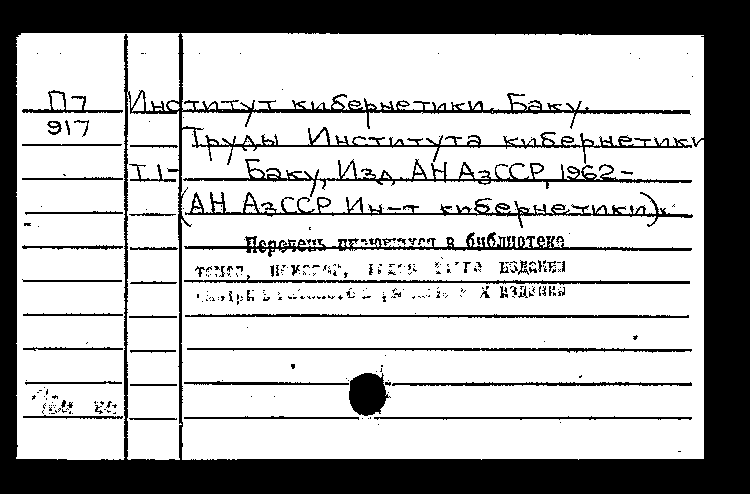 П7 Институт кибернетики. Баку.
917
Труды Института кибернетики
Т 1- Баку, Изд. АН АзССР, 1962-
(АН АзССР Ин-т кибернетики).
Перечень имеющихся в библиотеке
томов, номеров, годов этого издания
издания